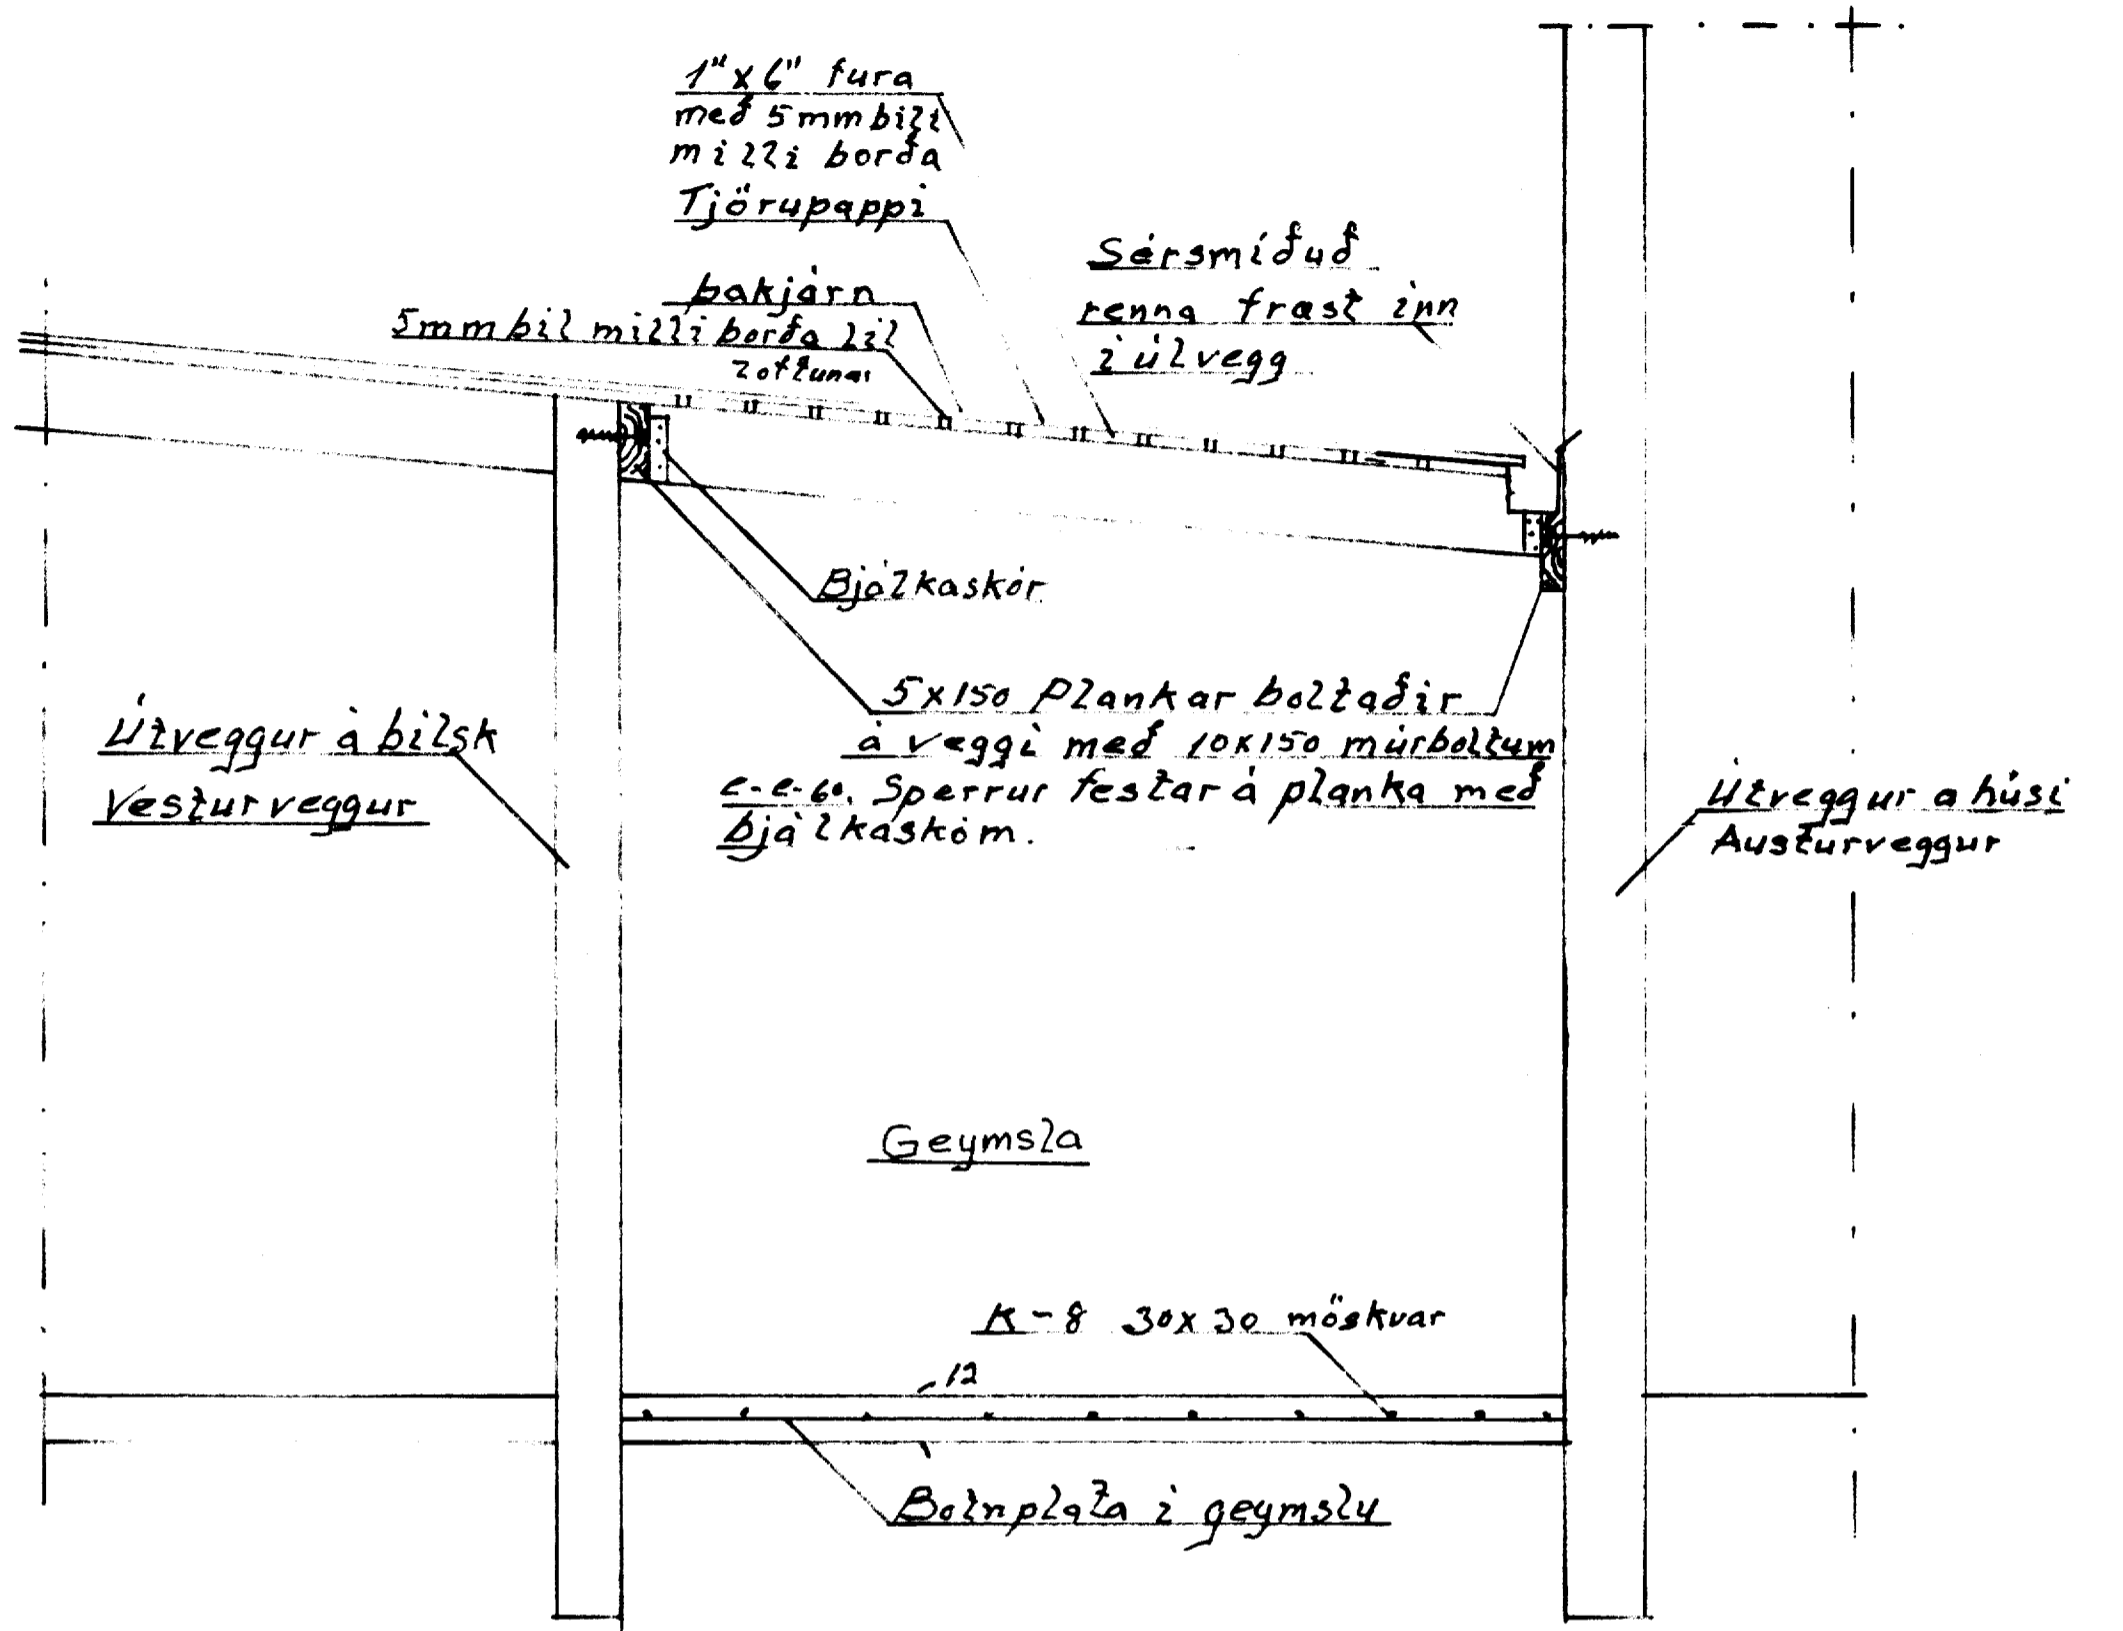 1"x6" fura
með 5mm bili
milli borða
Tjörupappi
Þakjárn
5mm bil milli borða til
loftunar
Sérsmíðuð
renna fræst inn
í útvegg
Bjálkaskór
5x150 Plankar boltaðir
á veggi með 10x150 múrboltum
c-c-60. Sperrur festar á planka með
bjálkaskóm.
Útveggur á bílsk
Vesturveggur
Útveggur a húsi
Austurveggur
Geymsla
K-8 30x30 möskvar
12
Botnplata í geymslu